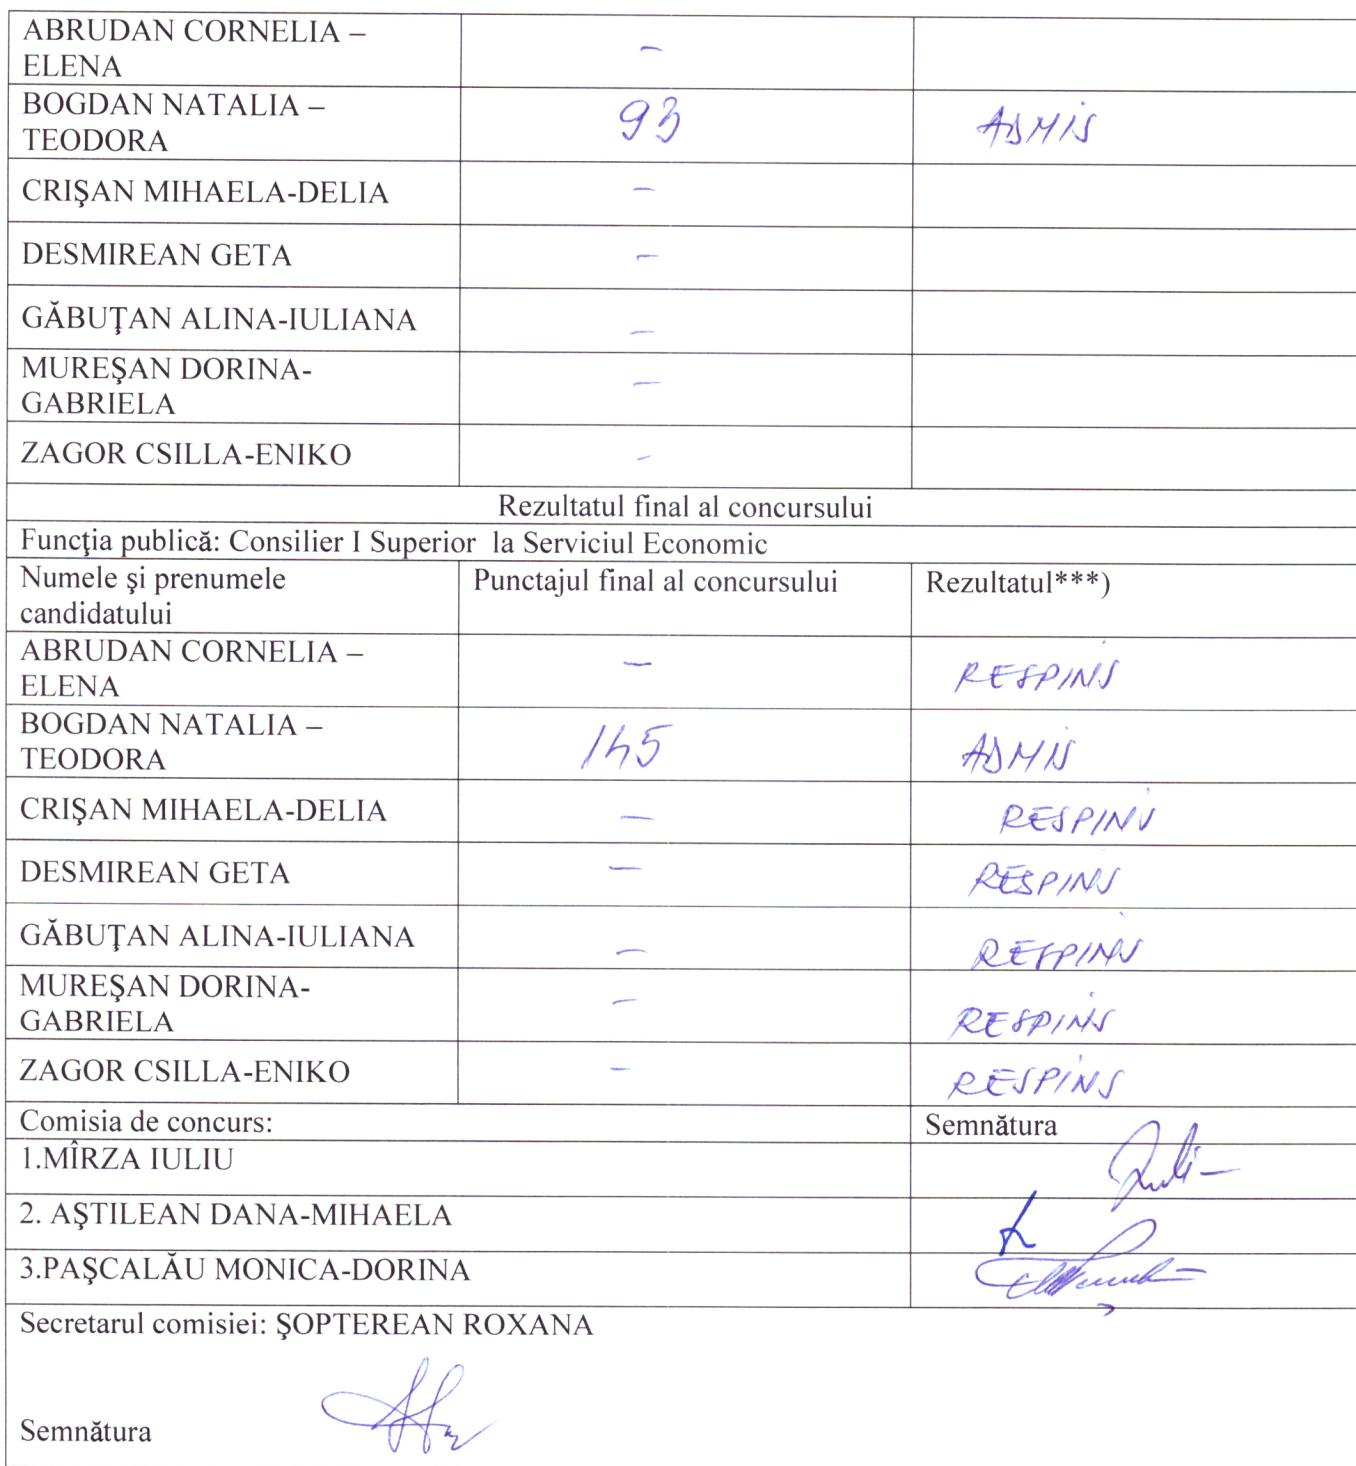 ABRUDAN CORNELIA –
ELENA
–
BOGDAN NATALIA –
TEODORA
93
ADMIS
CRIŞAN MIHAELA-DELIA
–
DESMIREAN GETA
–
GĂBUŢAN ALINA-IULIANA
–
MUREŞAN DORINA-
GABRIELA
–
ZAGOR CSILLA-ENIKO
–
Rezultatul final al concursului
Funcţia publică: Consilier I Superior la Serviciul Economic
Numele şi prenumele
candidatului
Punctajul final al concursului
Rezultatul***)
ABRUDAN CORNELIA –
ELENA
–
RESPINS
BOGDAN NATALIA –
TEODORA
145
ADMIS
CRIŞAN MIHAELA-DELIA
–
RESPINS
DESMIREAN GETA
–
RESPINS
GĂBUŢAN ALINA-IULIANA
–
RESPINS
MUREŞAN DORINA-
GABRIELA
–
RESPINS
ZAGOR CSILLA-ENIKO
–
RESPINS
Comisia de concurs:
Semnătura
1.MÎRZA IULIU
2. AŞTILEAN DANA-MIHAELA
3.PAŞCALĂU MONICA-DORINA
Secretarul comisiei: ŞOPTEREAN ROXANA
Semnătura